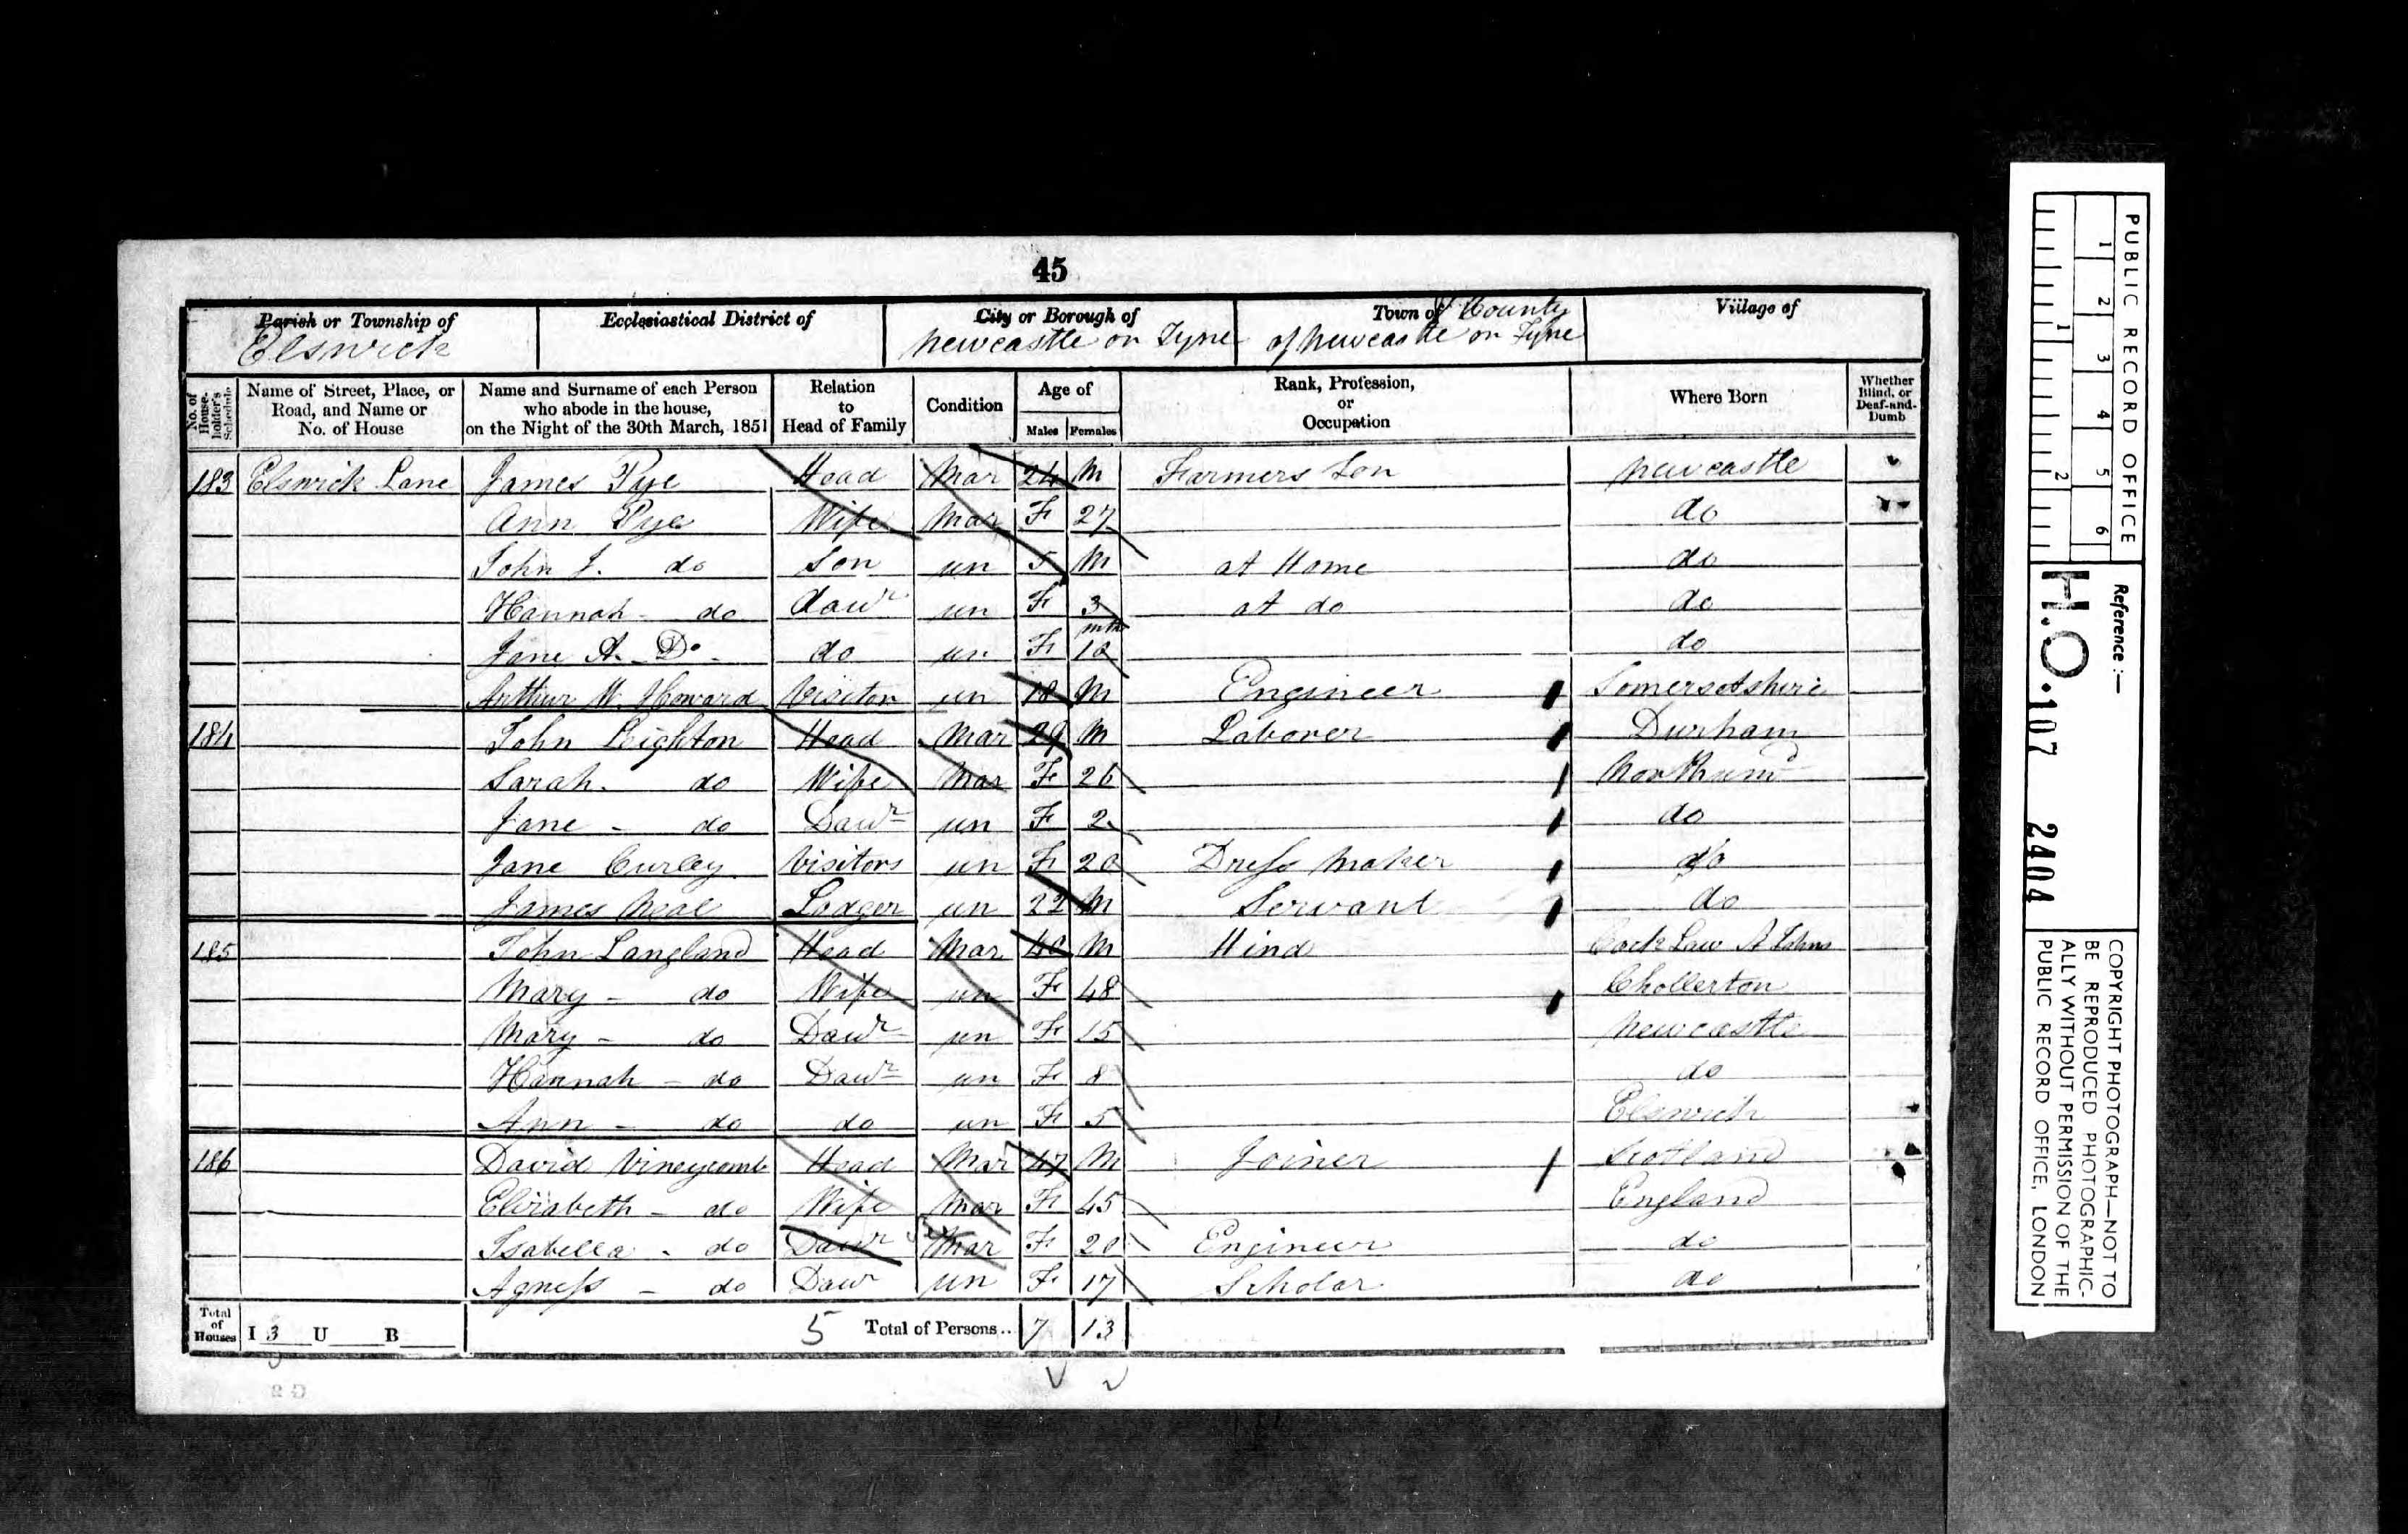 45
Parish or Township of Ecclesiastical District of City or Borough of Town of & County Village of
Elswick Newcastle on Tyne of Newcastle on Tyne
No. of House-holder's Schedule Name of Street, Place, or Road, and Name or No. of House Name and Surname of each Person who abode in the house, on the Night of the 30th March, 1851 Relation to Head of Family Condition Age of Males Females Rank, Profession, or Occupation Where Born Whether Blind, or Deaf-and-Dumb
183 Elswick Lane James Pye Head Mar 24 M Farmers Son Newcastle
Ann Pye Wife Mar F 27 do
John J. do Son un 5 M at Home do
Hannah - do dawr un F 3 at do do
Jane A. Do - do un F mths 10 do
Arthur W. Howard Visitor un 18 M Engineer Somersetshire
184 John Leighton Head Mar 29 M Laborer Durham
Sarah. do Wife Mar F 26 Northumd
Jane - do Dawr un F 2 do
Jane Curley Visitors un F 20 Dress Maker do
James Neal Lodger un 22 M Servant do
185 John Langland Head Mar 40 M Hind Cock Law St Johns
Mary - do Wife un F 48 Chollerton
Mary - do Dawr un F 15 Newcastle
Hannah - do Dawr un F 8 do
Ann - do do un F 5 Elswick
186 David Vineycomb Head Mar 47 M Joiner Scotland
Elizabeth - do Wife Mar F 45 England
Isabella - do Dawr Mar F 20 Engineer do
Agness - do Dawr un F 17 Scholar do
Total of Houses I 3 U B 5 Total of Persons.. 7 13
PUBLIC RECORD OFFICE
1 2 3 4 5 6
1 2
Reference :—
H.O. 107 2404
COPYRIGHT PHOTOGRAPH—NOT TO
BE REPRODUCED PHOTOGRAPHIC-
ALLY WITHOUT PERMISSION OF THE
PUBLIC RECORD OFFICE, LONDON